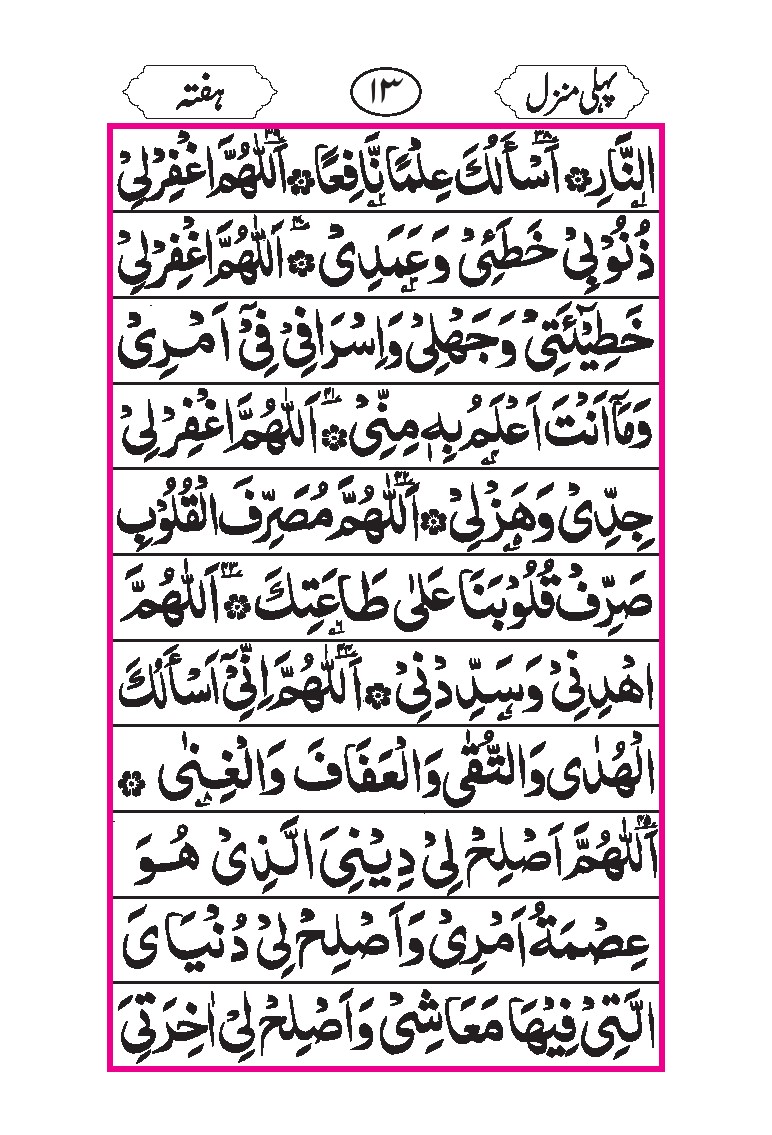 پہلی منزل ۱۳ ہفتہ
النَّارِ ۞ اَسْأَلُكَ عِلْمًا نَّافِعًا ۞ اَللّٰهُمَّ اغْفِرْ لِیْ
ذُنُوْبِیْ خَطَئِیْ وَعَمَدِیْ ۞ اَللّٰهُمَّ اغْفِرْ لِیْ
خَطِیْٓئَتِیْ وَجَهْلِیْ وَاِسْرَافِیْ فِیْٓ اَمْرِیْ
وَمَآ اَنْتَ اَعْلَمُ بِهٖ مِنِّیْ ۞ اَللّٰهُمَّ اغْفِرْ لِیْ
جِدِّیْ وَهَزْلِیْ ۞ اَللّٰهُمَّ مُصَرِّفَ الْقُلُوْبِ
صَرِّفْ قُلُوْبَنَا عَلٰی طَاعَتِكَ ۞ اَللّٰهُمَّ
اهْدِنِیْ وَسَدِّدْنِیْ ۞ اَللّٰهُمَّ اِنِّیْٓ اَسْأَلُكَ
الْهُدٰی وَالتُّقٰی وَالْعَفَافَ وَالْغِنٰی ۞
اَللّٰهُمَّ اَصْلِحْ لِیْ دِیْنِیَ الَّذِیْ هُوَ
عِصْمَةُ اَمْرِیْ وَاَصْلِحْ لِیْ دُنْیَایَ
الَّتِیْ فِیْهَا مَعَاشِیْ وَاَصْلِحْ لِیْ اٰخِرَتِیَ